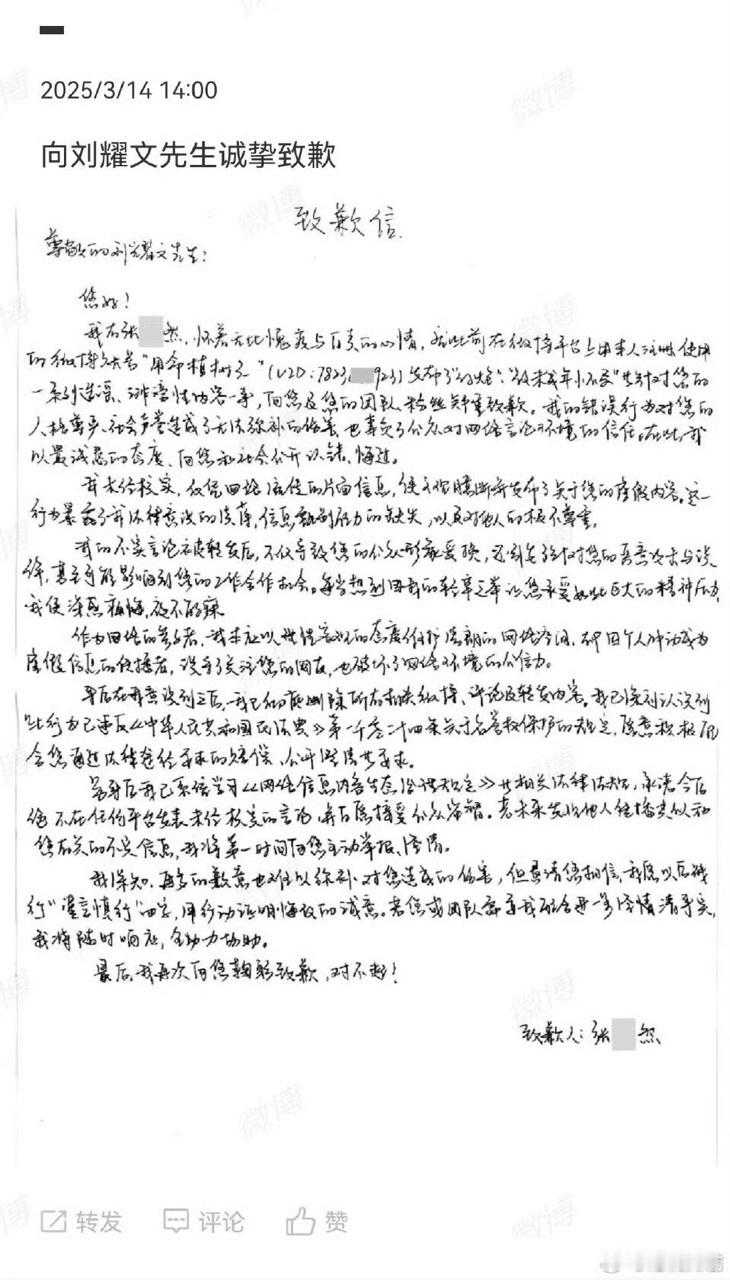 2025/3/14 14:00
向刘耀文先生诚挚致歉
致歉信
尊敬的刘耀文先生:
您好!
我石张 然,怀着无比愧疚与自责的心情,就此前在微博平台上由本人注册使用
的微博账号"用命植树 "(UID:7823 923)发布 "致未成年 " 针对您的
一系列造谣、涉 性内容一事,向您及您的团队、粉丝郑重致歉。我的错误行为对您的
人格尊严、社会声誉造成了无法弥补的伤害,也辜负了公众对网络言论环境的信任。在此,我
以最诚恳的态度,向您和社会公开认错、悔过。
我未经核实,仅凭网络流传的片面信息,便主观臆断并发布了关于您的虚假内容。这一
行为暴露了我法律意识的淡薄,信息甄别能力的缺失,以及对他人的极不尊重。
我的不实言论被转发后,不仅导致您的公众形象受损,还引发针对您的恶意攻击与误
解,甚至可能影响到您的工作合作机会。每当想到因我的轻率之举让您承受如此巨大的精神压力,
我便深感痛悔,夜不能寐。
作为网络的参与者,我本应以理性客观的态度维护清朗的网络空间,却因个人冲动成为
虚假信息的传播者,误导了关注您的网友,也破坏了网络环境的公信力。
事后在我意识到之后,我已彻底删除所有相关微博、评论及转发内容。我已深刻认识到
此行为已违反《中华人民共和国民法典》第一千零二十四条关于名誉权保护的规定,愿意积极配
合您通过法律途径寻求的赔偿、公开澄清等要求。
另事后我已系统学习《网络信息内容生态治理规定》等相关法律法规,承诺今后
绝不在任何平台发表未经核实的言论,并自愿接受公众监督。若未来发现他人传播类似和
您有关的不实信息,我将第一时间向您主动举报、澄清。
我深知,再多的歉意也难以弥补对您造成的伤害,但恳请您相信,我愿以后践
行"谨言慎行"四字,用行动证明悔改的诚意。若您或团队需要我配合进一步澄清事实,
我将随时响应,全力协助。
最后,我再次向您鞠躬致歉,对不起!
致歉人:张 然
转发 评论 赞
微博